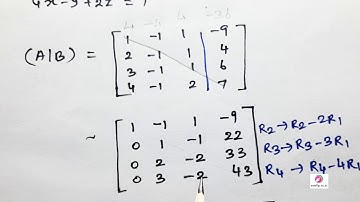 4x-y+2z = 7
4 -4 4 -36
(A|B) = [ 1 -1 1 | -9
2 -1 -1 | 4
3 -1 1 | 6
4 -1 2 | 7 ]
~ [ 1 -1 1 -9
0 1 -1 22
0 2 -2 33
0 3 -2 43 ]
R2→R2-2R1
R3→R3-3R1
R4→R4-4R1